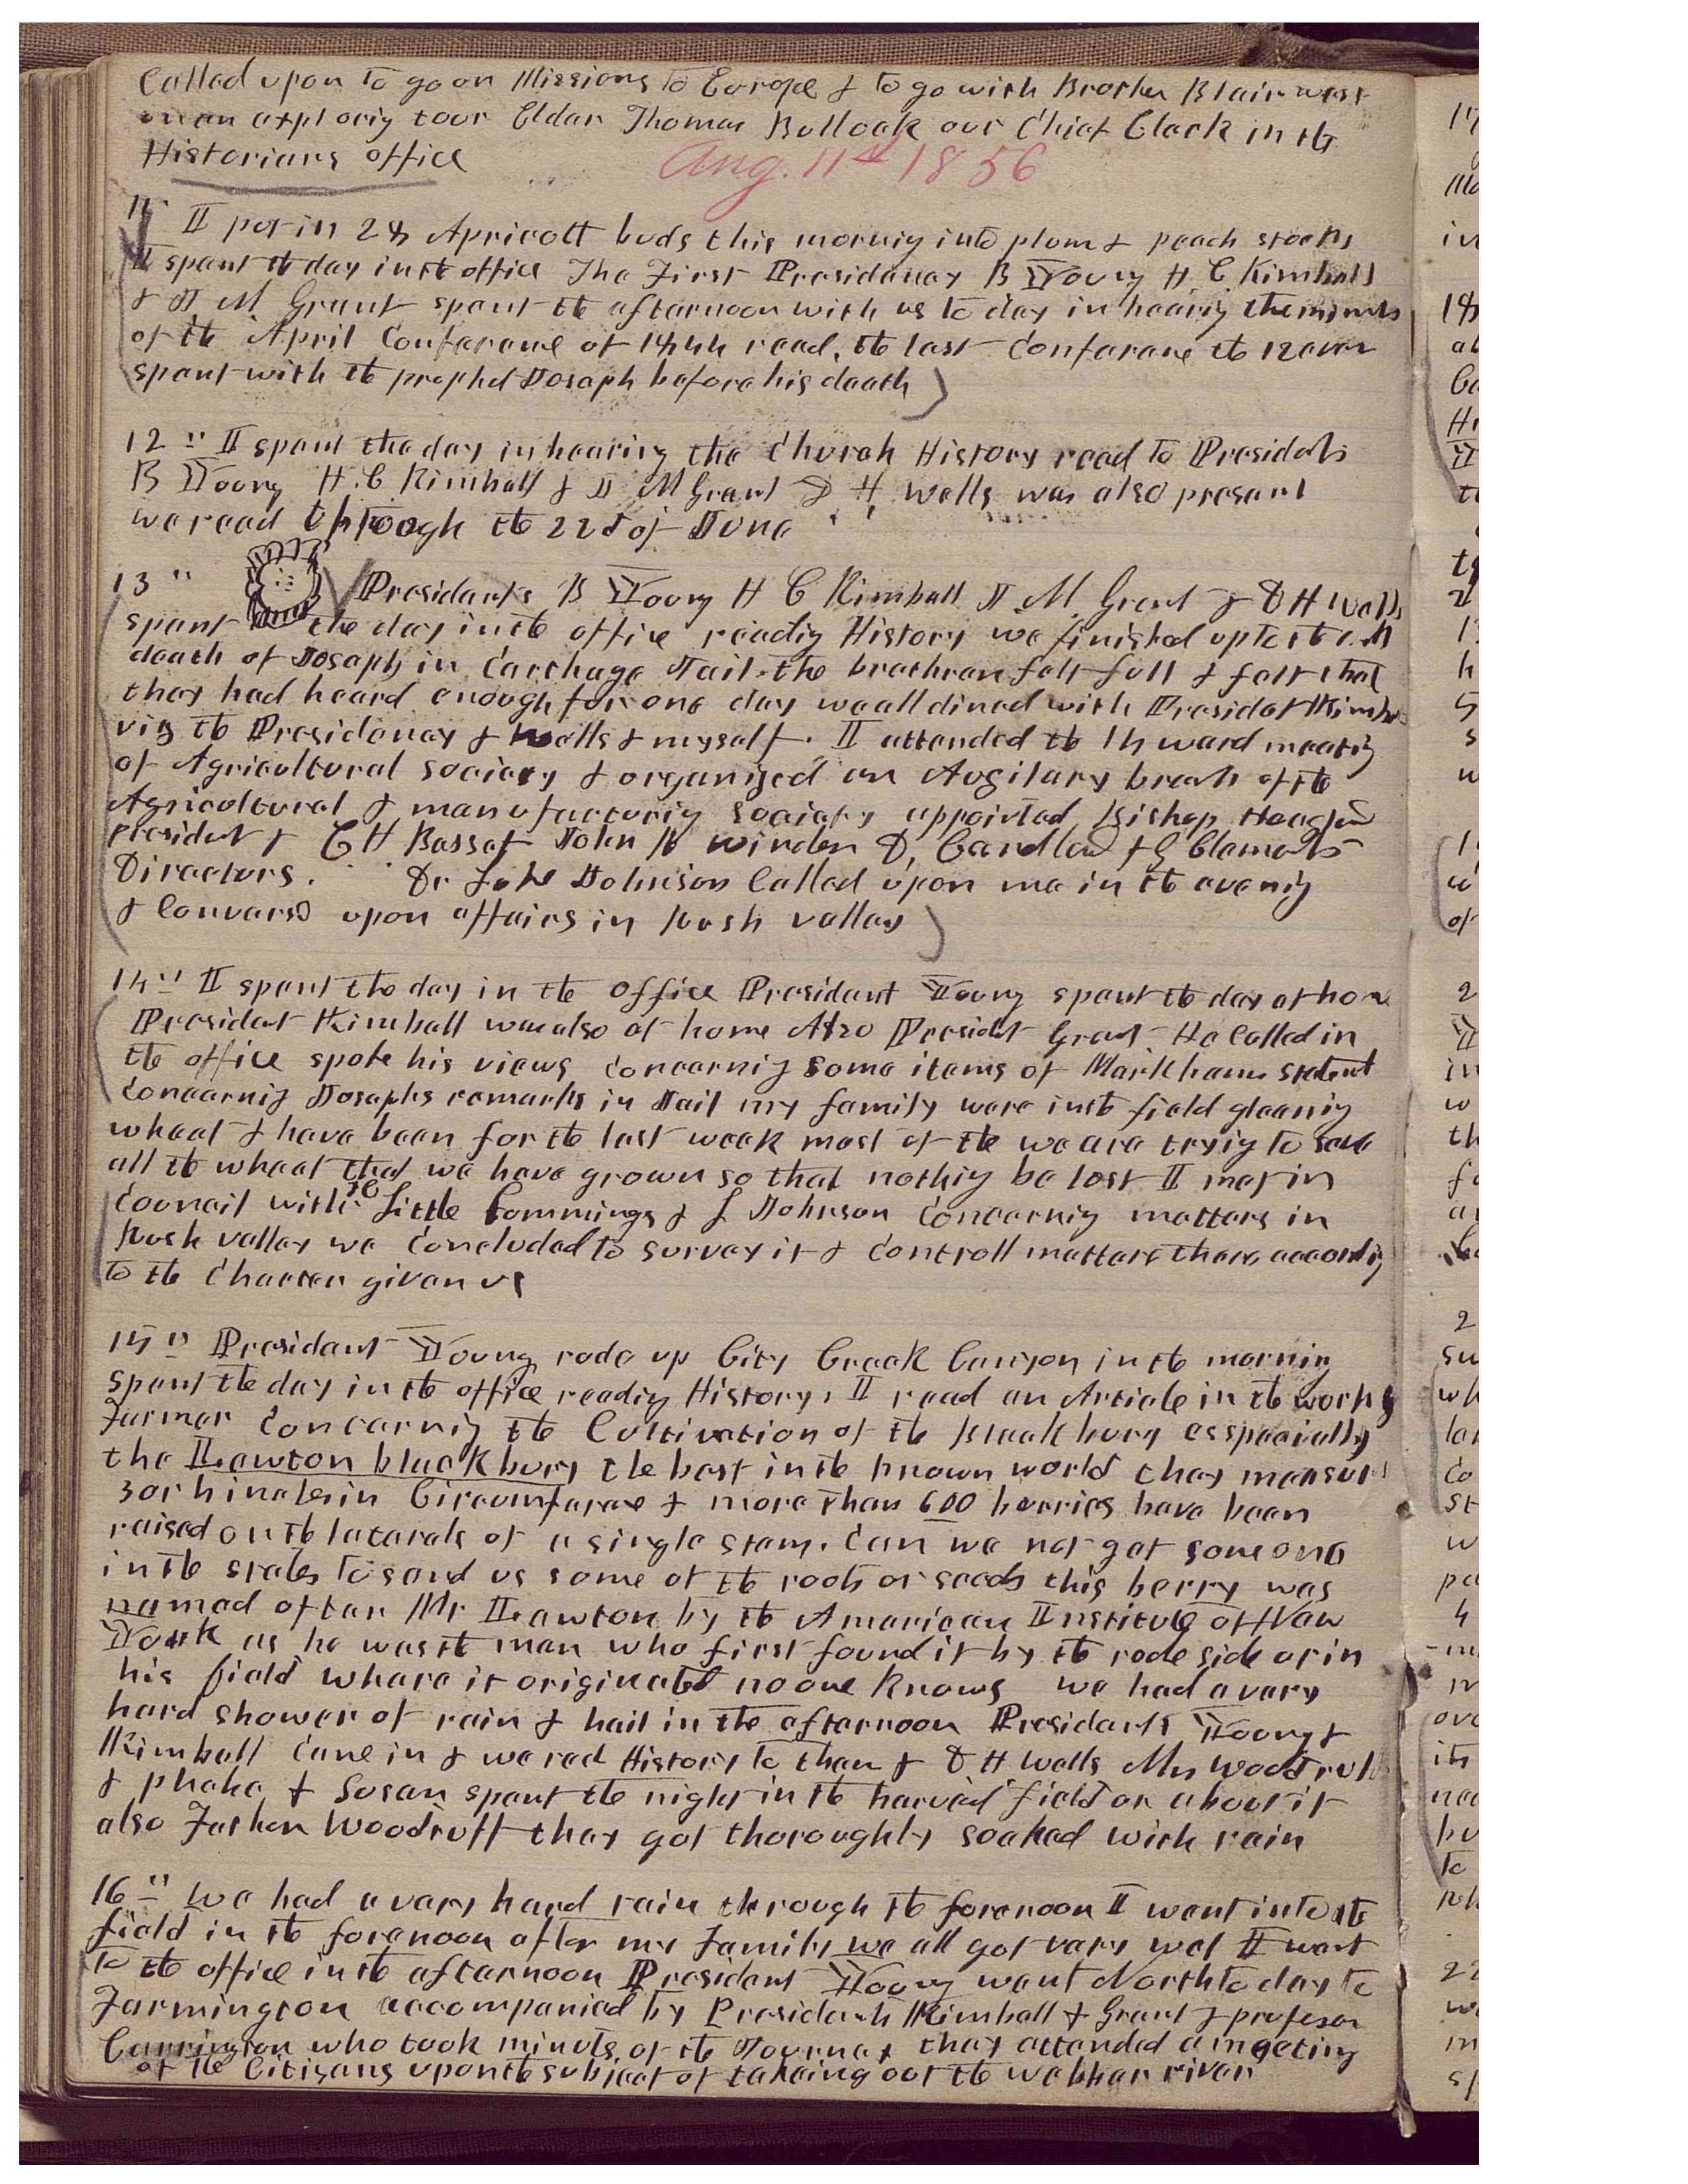 Called upon to go on Missions to Europe & to go with Brother Blair west
on an exploring tour Elder Thomas Bullock our Chief Clerk in the
Historians office
Aug. 11th 1856
11 I put in 28 Apricott buds this morning into plum & peach stocks
I spent the day in the office The First Presidency B Young H. C. Kimball
& J M Grant spent the afternoon with us to day in hearing the minuts
of the April Conferance of 1844 read, the last Conferance the 12 ever
spent with the prophet Joseph before his death
12 " I spent the day in hearing the Church History read to Presidets
B Young H. C Kimball & J M Grant D H, Wells was also present
we read through the 22d of June
13 " Presidents B Young H C Kimball J. M. Grant & D H Wells
spent the day in the office reading History we finished up to the
death of Joseph in Carthage Jail. the brethren felt full & felt that
they had heard enough for one day we all dined with Presidet Kimball
viz the Presidency & Wells & myself. I attended the 14 ward meeting
of Agricultural Society & organized an Augilary branch of the
Agricultural & manufacturing Society appointed Bishop Hoagland
president & C H Basset John B Winder D, Candland & G Clements
Directors. Dr Luke Johnson Called upon me in the evening
& Conversed upon affairs in Rush valley
14 " I spent the day in the office President Young spent the day at home
Presidet Kimball was also at home Also Presidt Grant He Called in
the office spoke his views Concerning some items of Markhams statemt
Concerning Josephs remarks in Jail my family were in the field gleaning
wheat & have been for the last week most of the we are trying to save
all the wheat that we have grown so that nothing be lost I met in
Council with Little Commings & L Johnson Concerning matters in
Rush valley we Concluded to survey it & Controll matters there according
to the Charter given us
15 " President Young rode up City Creek Canyon in the morning
spent the day in the office reading History, I read an Article in the working
Farmer Concerning the Cultivation of the blackbury esspecially
the Lawton blackbury the best in the known world they mansure
3 or 4 inches in Circumfarance & more than 600 berries have been
raised on the laterals of a single stem. Can we not get some one
in the states to send us some of the roots or seeds this berry was
named after Mr Lawton by the American Institute of New
York as he was the man who first found it by the rode side or in
his field whare it originated no one knows we had a very
hard shower of rain & hail in the afternoon Presidents Young &
Kimball Came in & we red History to them & D H Wells Mrs Woodruff
& Phebe & Susan spent the night in the harvest field or about it
also Father Woodruff they got thoroughly soaked with rain
16 " We had a very hard rain through the forenoon I went into the
field in the forenoon after my Family we all got very wet I went
to the office in the afternoon President Young went North to day to
Farmington accompanied by Presidents Kimball & Grant & profesor
Carrington who took minuts of the Journey they attended a meeting
of the Citizens upon the subject of takeing out the webber river